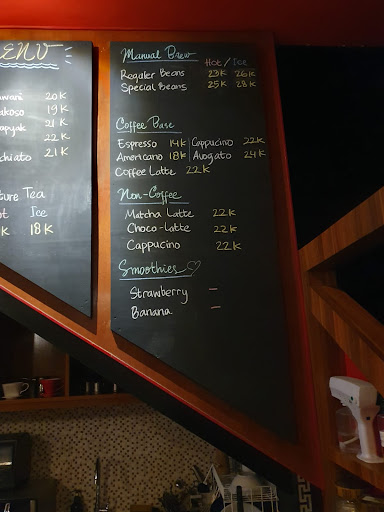 ENU
20K
19K
21K
22K
21K
Tea
Ice
K 18K
Manual Brew Hot / Ice
Regaler Beans 23K 26K
Special Beans 25K 28K
Coffee Base
Espresso 14K Cappucino 22K
Americano 18K Avogato 24K
Coffee Latte 22K
Non-Coffee
Matcha Latte 22K
Choco-Latte 22K
Cappucino 22K
Smoothies
Strawberry —
Banana —